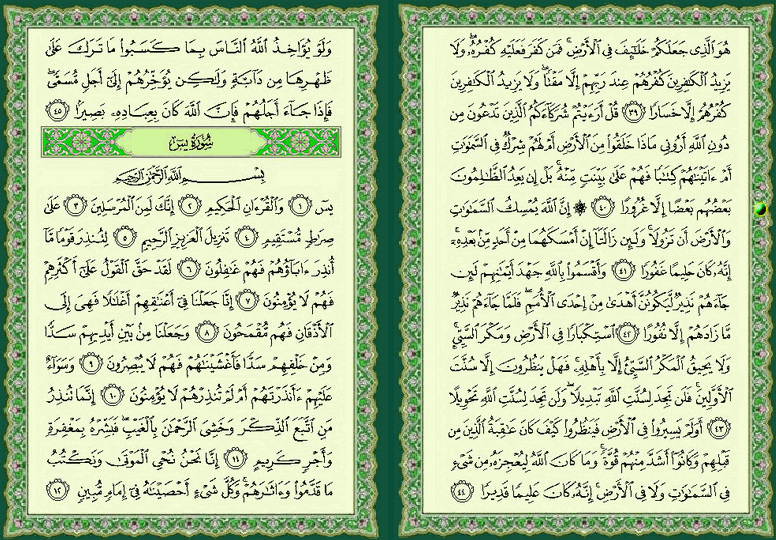 هُوَ الَّذِي جَعَلَكُمْ خَلَٰٓئِفَ فِي الْأَرْضِ ۚ فَمَن كَفَرَ فَعَلَيْهِ كُفْرُهُۥ ۖ وَلَا
يَزِيدُ الْكَٰفِرِينَ كُفْرُهُمْ عِندَ رَبِّهِمْ إِلَّا مَقْتًا ۖ وَلَا يَزِيدُ الْكَٰفِرِينَ
كُفْرُهُمْ إِلَّا خَسَارًا ٣٩ قُلْ أَرَءَيْتُمْ شُرَكَآءَكُمُ الَّذِينَ تَدْعُونَ مِن
دُونِ اللَّهِ أَرُونِي مَاذَا خَلَقُوا۟ مِنَ الْأَرْضِ أَمْ لَهُمْ شِرْكٌ فِي السَّمَٰوَٰتِ
أَمْ ءَاتَيْنَٰهُمْ كِتَٰبًا فَهُمْ عَلَىٰ بَيِّنَتٍ مِّنْهُ ۚ بَلْ إِن يَعِدُ الظَّٰلِمُونَ
بَعْضُهُم بَعْضًا إِلَّا غُرُورًا ٤٠ ۞ إِنَّ اللَّهَ يُمْسِكُ السَّمَٰوَٰتِ
وَالْأَرْضَ أَن تَزُولَا ۚ وَلَئِن زَالَتَآ إِنْ أَمْسَكَهُمَا مِنْ أَحَدٍ مِّنۢ بَعْدِهِۦٓ ۚ
إِنَّهُۥ كَانَ حَلِيمًا غَفُورًا ٤١ وَأَقْسَمُوا۟ بِاللَّهِ جَهْدَ أَيْمَٰنِهِمْ لَئِن
جَآءَهُمْ نَذِيرٌ لَّيَكُونُنَّ أَهْدَىٰ مِنْ إِحْدَى الْأُمَمِ ۖ فَلَمَّا جَآءَهُمْ نَذِيرٌ
مَّا زَادَهُمْ إِلَّا نُفُورًا ٤٢ اسْتِكْبَارًا فِي الْأَرْضِ وَمَكْرَ السَّيِّئِ ۚ
وَلَا يَحِيقُ الْمَكْرُ السَّيِّئُ إِلَّا بِأَهْلِهِۦ ۚ فَهَلْ يَنظُرُونَ إِلَّا سُنَّتَ
الْأَوَّلِينَ ۚ فَلَن تَجِدَ لِسُنَّتِ اللَّهِ تَبْدِيلًا ۖ وَلَن تَجِدَ لِسُنَّتِ اللَّهِ تَحْوِيلًا
٤٣ أَوَلَمْ يَسِيرُوا۟ فِي الْأَرْضِ فَيَنظُرُوا۟ كَيْفَ كَانَ عَٰقِبَةُ الَّذِينَ مِن
قَبْلِهِمْ وَكَانُوٓا۟ أَشَدَّ مِنْهُمْ قُوَّةً ۚ وَمَا كَانَ اللَّهُ لِيُعْجِزَهُۥ مِن شَيْءٍ
فِي السَّمَٰوَٰتِ وَلَا فِي الْأَرْضِ ۚ إِنَّهُۥ كَانَ عَلِيمًا قَدِيرًا ٤٤
وَلَوْ يُؤَاخِذُ اللَّهُ النَّاسَ بِمَا كَسَبُوا۟ مَا تَرَكَ عَلَىٰ
ظَهْرِهَا مِن دَآبَّةٍ وَلَٰكِن يُؤَخِّرُهُمْ إِلَىٰٓ أَجَلٍ مُّسَمًّى ۖ
فَإِذَا جَآءَ أَجَلُهُمْ فَإِنَّ اللَّهَ كَانَ بِعِبَادِهِۦ بَصِيرًۢا ٤٥
سُورَةُ يسٓ
بِسْمِ اللَّهِ الرَّحْمَٰنِ الرَّحِيمِ
يسٓ ١ وَالْقُرْءَانِ الْحَكِيمِ ٢ إِنَّكَ لَمِنَ الْمُرْسَلِينَ ٣ عَلَىٰ
صِرَٰطٍ مُّسْتَقِيمٍ ٤ تَنزِيلَ الْعَزِيزِ الرَّحِيمِ ٥ لِتُنذِرَ قَوْمًا مَّآ
أُنذِرَ ءَابَآؤُهُمْ فَهُمْ غَٰفِلُونَ ٦ لَقَدْ حَقَّ الْقَوْلُ عَلَىٰٓ أَكْثَرِهِمْ
فَهُمْ لَا يُؤْمِنُونَ ٧ إِنَّا جَعَلْنَا فِيٓ أَعْنَٰقِهِمْ أَغْلَٰلًا فَهِيَ إِلَى
الْأَذْقَانِ فَهُم مُّقْمَحُونَ ٨ وَجَعَلْنَا مِنۢ بَيْنِ أَيْدِيهِمْ سَدًّا
وَمِنْ خَلْفِهِمْ سَدًّا فَأَغْشَيْنَٰهُمْ فَهُمْ لَا يُبْصِرُونَ ٩ وَسَوَآءٌ
عَلَيْهِمْ ءَأَنذَرْتَهُمْ أَمْ لَمْ تُنذِرْهُمْ لَا يُؤْمِنُونَ ١٠ إِنَّمَا تُنذِرُ
مَنِ اتَّبَعَ الذِّكْرَ وَخَشِيَ الرَّحْمَٰنَ بِالْغَيْبِ ۖ فَبَشِّرْهُ بِمَغْفِرَةٍ
وَأَجْرٍ كَرِيمٍ ١١ إِنَّا نَحْنُ نُحْيِ الْمَوْتَىٰ وَنَكْتُبُ
مَا قَدَّمُوا۟ وَءَاثَٰرَهُمْ ۚ وَكُلَّ شَيْءٍ أَحْصَيْنَٰهُ فِيٓ إِمَامٍ مُّبِينٍ ١٢